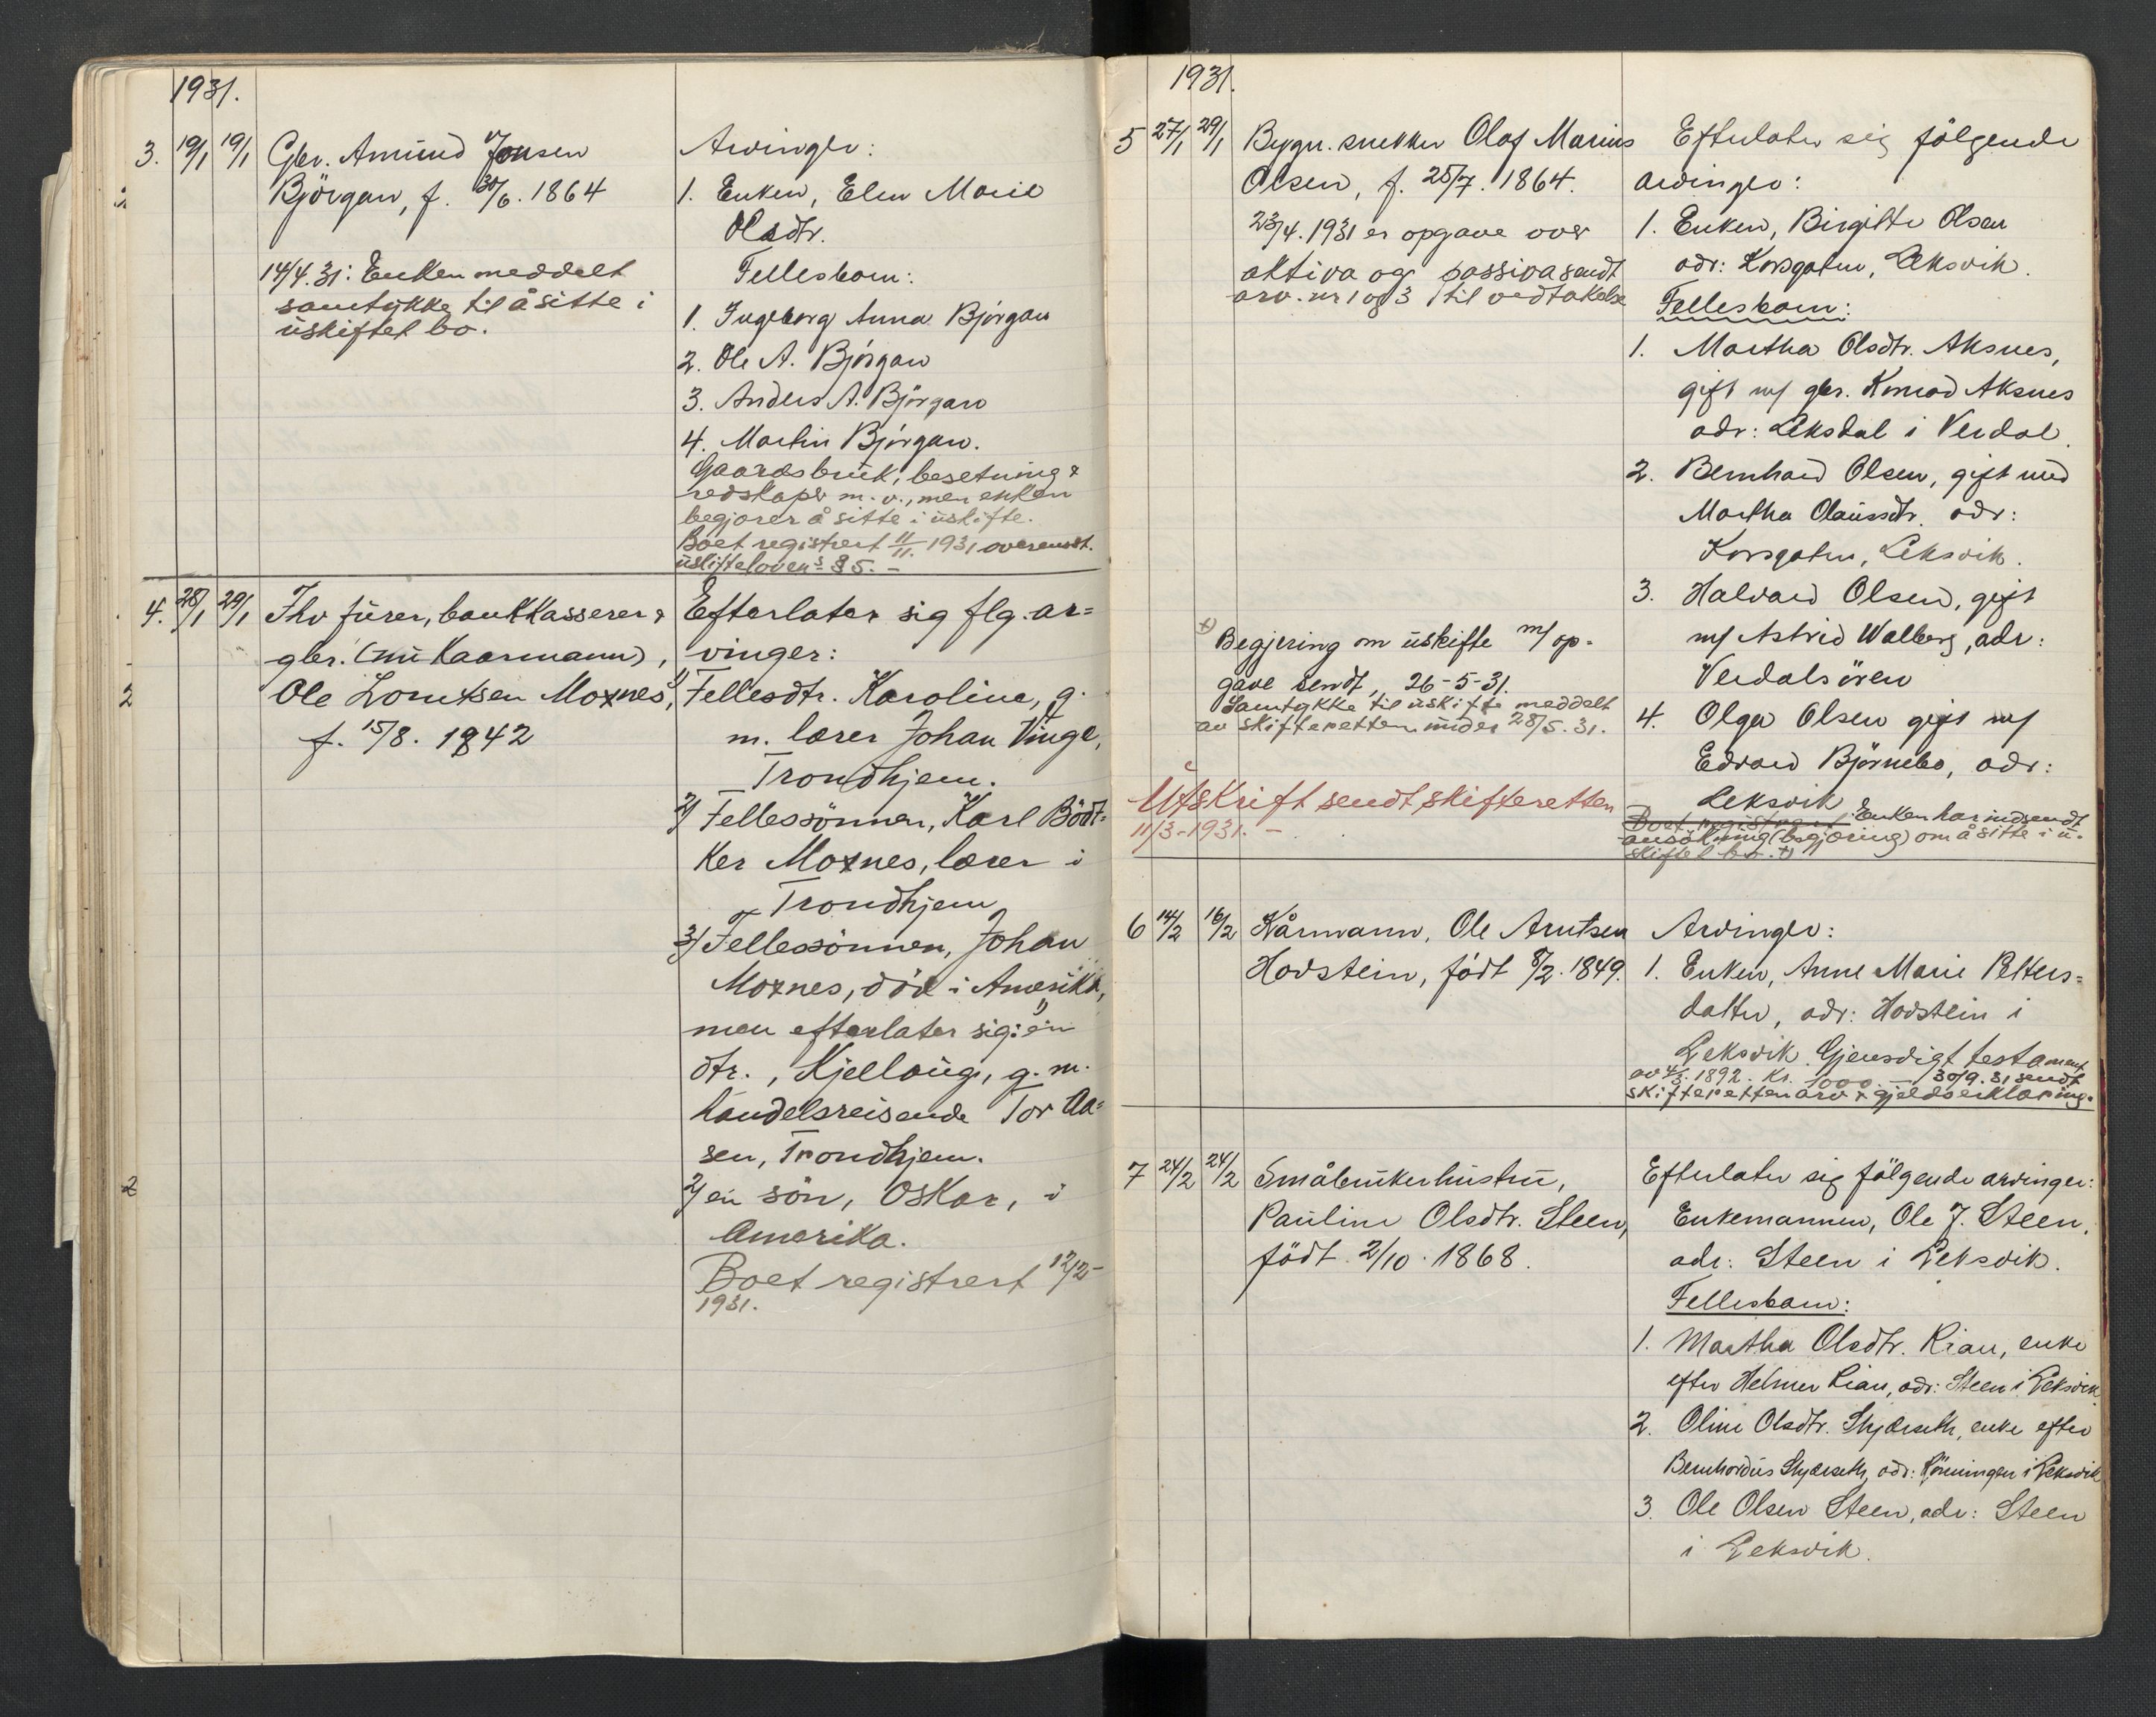 1931.
3. 19/1 19/1 Gbr. Amund Jonsen
Björgan, f. 30/6. 1864
14/4.31: Enken meddelt
samtykke til å sitte i
uskiftet bo.
Arvinger:
1. Enken, Elen Marie
Olsdtr.
Fellesbarn:
1. Ingeborg Anna Björgan
2. Ole A. Björgan
3. Anders A. Björgan
4. Martin Björgan.
Gaardsbruk, besetning &
redskaper m.v., men enken
begjærer å sitte i uskifte.
Boet registrert 11/11. 1931 overensst.
uskiftelovens § 5. –
4. 28/1 29/1 Fhv furer, bankkasserer &
gbr. (nu Kaarmann),
Ole Lorntsen Moxnes,
f. 15/8. 1842
Efterlater sig flg. ar=
vinger:
1) Fellesdtr. Karoline, g.
m. lærer Johan Vinge,
Trondhjem.
2) Fellessönnen, Karl Bödt=
ker Moxnes, lærer i
Trondhjem
3) Fellessönnen, Johan
Moxnes, död i Amerika,
men efterlater sig: 1) ein
dtr., Kjellaug, g. m.
handelsreisende Tor Aa=
sen, Trondhjem.
2) ein sön, Oskar, i
Amerika.
Boet registrert 12/2-
1931.
1931.
5 27/1 29/1 Bygn. snekker Olaf Marius
Olsen, f. 25/7. 1864.
23/4. 1931 er opgave over
aktiva og passiva sendt
arv. nr 1 og 3 til vedtakelse
+) Begjering om uskifte m/ op-
gave sendt, 26-5-31.
Samtykke til uskifte meddelt
av skifteretten under 28/5. 31.
Utskrift sendt skifteretten
11/3-1931. –
Efterlater sig fölgende
arvinger:
1. Enken, Birgitte Olsen
adr: Korsgaten, Leksvik.
Fellesbarn:
1. Martha Olsdtr. Aksnes,
gift m/ gbr. Konrad Aksnes
adr: Leksdal i Verdal.
2. Bernhard Olsen, gift med
Martha Olausdtr. adr:
Korsgaten, Leksvik.
3. Halvard Olsen, gift
m/ Astrid Walberg, adr:
Verdalsören
4. Olga Olsen gift m/
Edvard Björnebo, adr:
Leksvik
Boet registrert Enken har indsendt
ansökning (begjæring) om å sitte i u-
skiftet bo. +)
6 14/2 16/2 Kårmann, Ole Arntsen
Hovstein, födt 8/2. 1849.
Arvinger:
1. Enken, Anne Marie Petters=
datter, adr: Hovstein i
Leksvik. Gjensidigt testament
av 4/3. 1892. Kr. 1000. – 30/9. 31 sendt
skifteretten arv & gjeldserklæring.
7 24/2 24/2 Småbrukerhustru,
Pauline Olsdtr. Steen,
födt 2/10. 1868.
Efterlater sig fölgende arvinger:
Enkemannen, Ole J. Steen,
adr: Steen i Leksvik.
Fellesbarn:
1. Martha Olsdtr. Rian, enke
efter Helmer Rian, adr: Steen i Leksvik
2. Oline Olsdtr. Skjærseth, enke efter
Bernhardus Skjærseth, adr: Rönningen i Leksvik
3. Ole Olsen Steen, adr: Steen
i Leksvik.